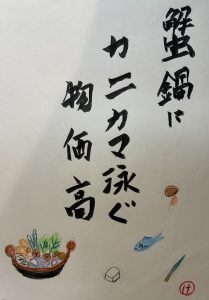 蟹鍋に
カニカマ泳ぐ
物価高
け